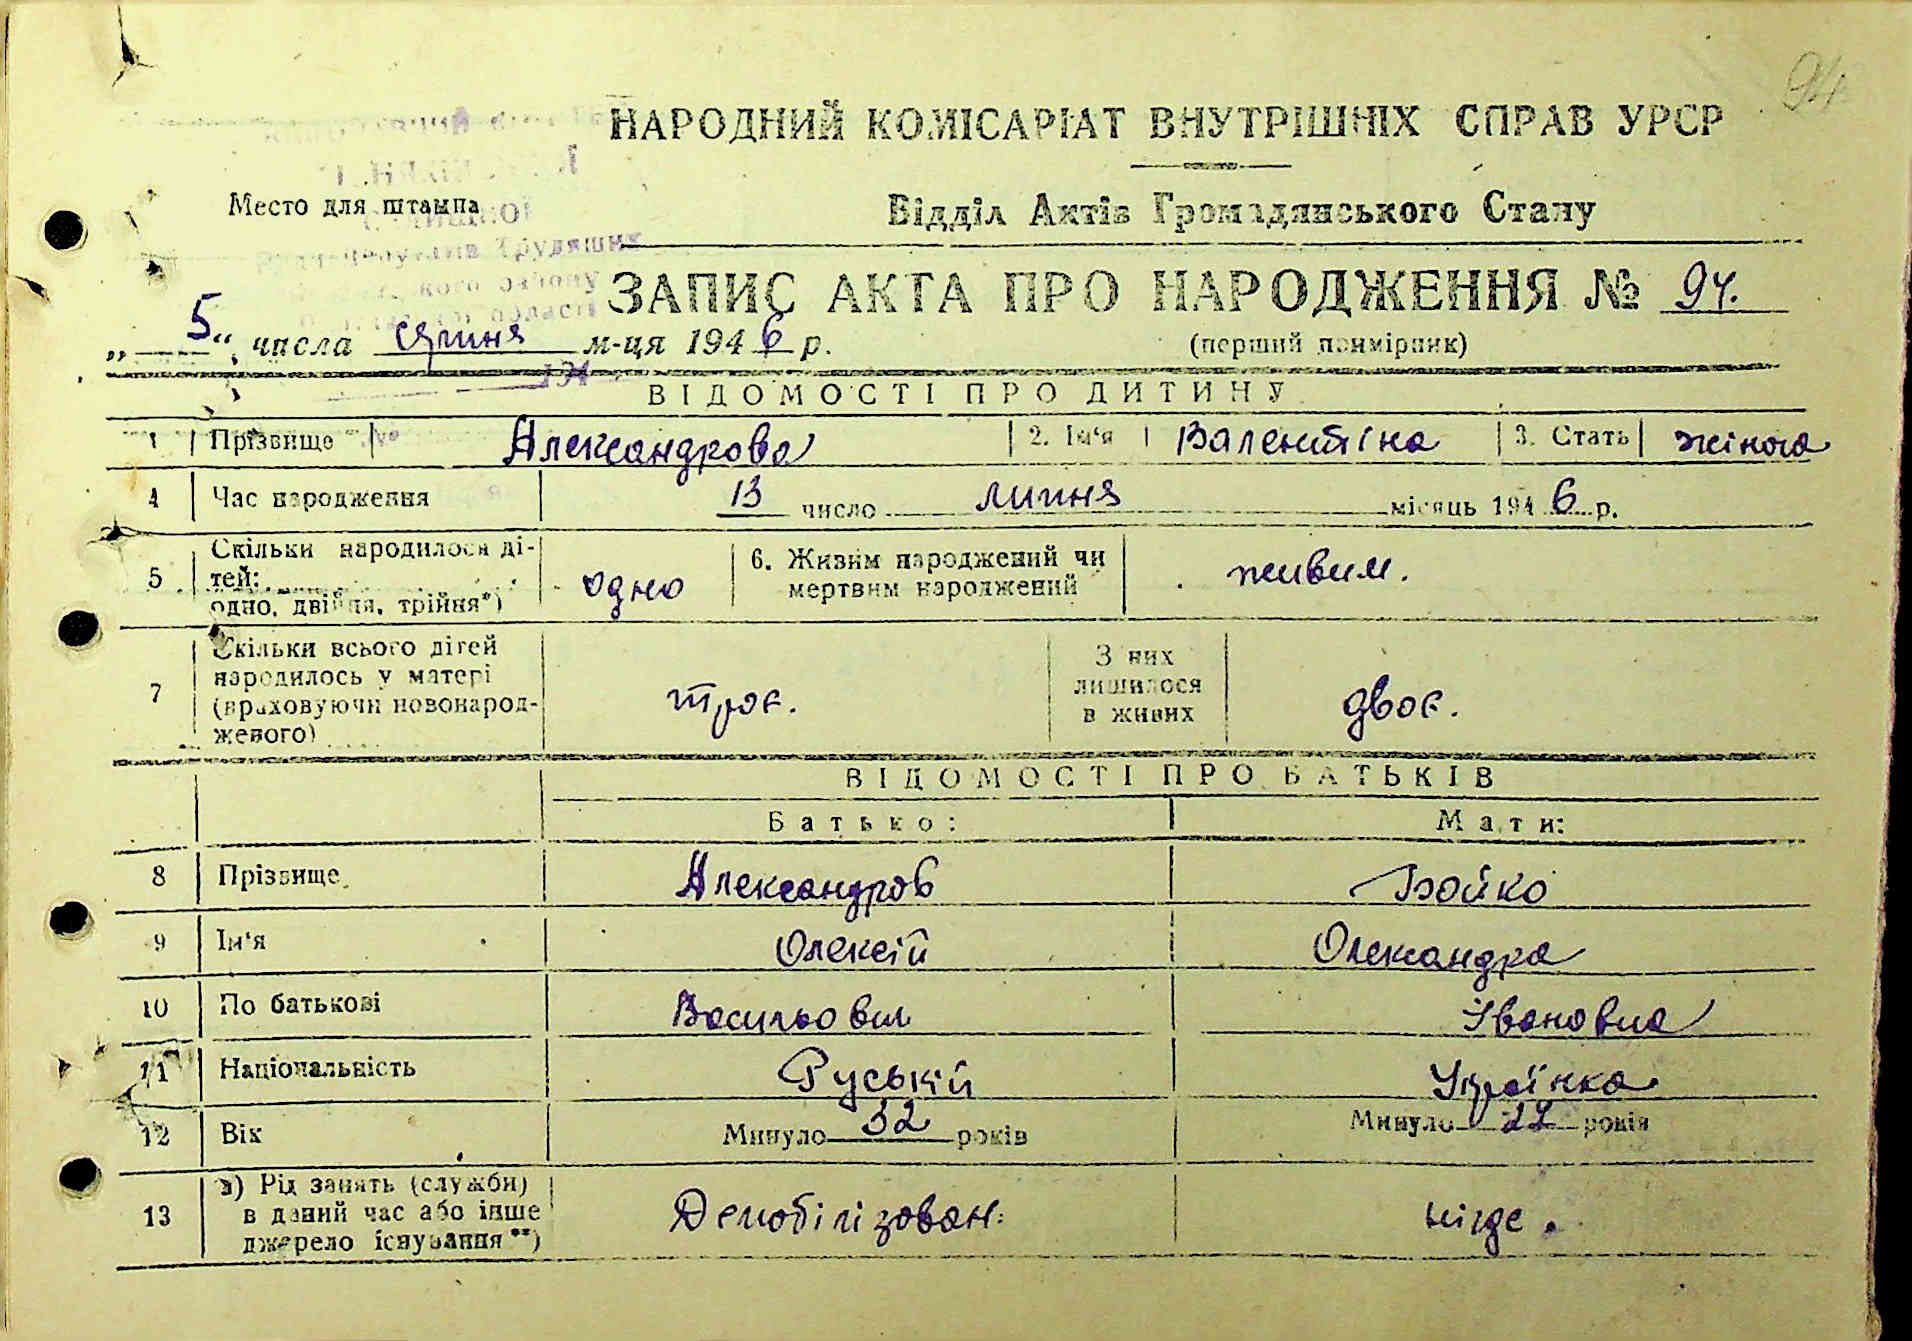 94
НАРОДНИЙ КОМІСАРІАТ ВНУТРІШНІХ СПРАВ УРСР
Место для штампа
Відділ Актів Громадянського Стану
Трудящих
району
області
ЗАПИС АКТА ПРО НАРОДЖЕННЯ № 94.
„ 5 “ числа серпня м-ця 1946 р.
(перший примірник)
194
ВІДОМОСТІ ПРО ДИТИНУ
1 Прізвище Александрова 2. Ім'я Валентіна 3. Стать жіноча
4 Час народження 13 число липня місяць 1946 р.
5 Скільки народилося ді-
тей:
одно, двійня, трійня*) одно 6. Живим народжений чи
мертвим народжений живим.
7 Скільки всього дітей
народилось у матері
(враховуючи новонарод-
женого) троє. З них
лишилося
в живих двоє.
ВІДОМОСТІ ПРО БАТЬКІВ
Батько: Мати:
8 Прізвище Александров Бойко
9 Ім'я Олексій Олександра
10 По батькові Васильович Івановна
11 Національність Руський Українка
12 Вік Минуло 32 років Минуло 22 років
13 а) Рід занять (служби)
в даний час або інше
джерело існування**) Демобілізован. нігде.